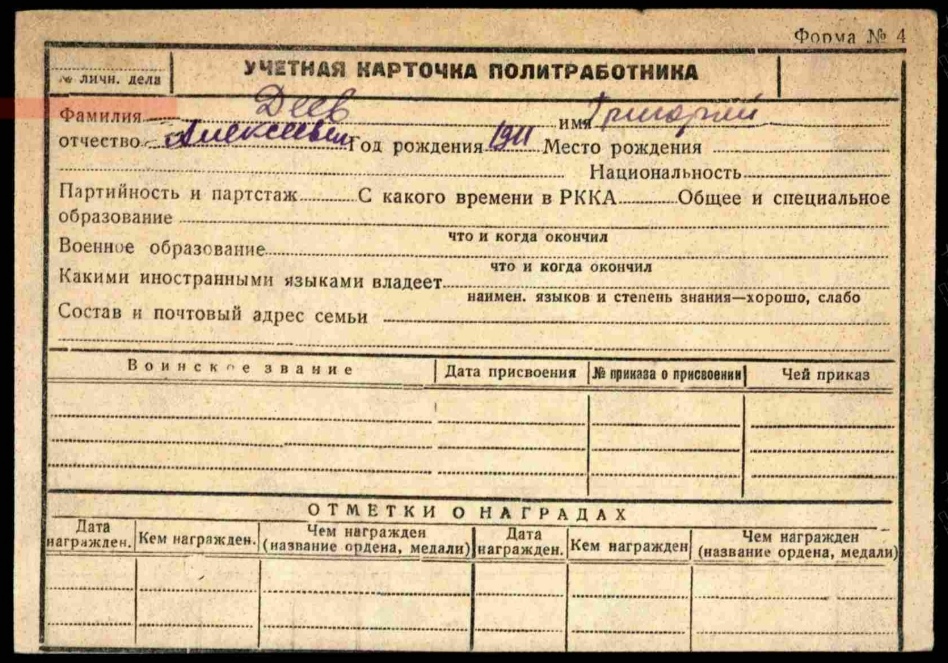 Форма № 4
№ личн. дела
УЧЕТНАЯ КАРТОЧКА ПОЛИТРАБОТНИКА
Фамилия Деев имя Григорий
отчество Алексеевич Год рождения 1911 Место рождения
Национальность
Партийность и партстаж С какого времени в РККА Общее и специальное
образование
что и когда окончил
Военное образование
что и когда окончил
Какими иностранными языками владеет
наимен. языков и степень знания—хорошо, слабо
Состав и почтовый адрес семьи
Воинское звание Дата присвоения № приказа о присвоении Чей приказ
ОТМЕТКИ О НАГРАДАХ
Дата награжден. Кем награжден. Чем награжден (название ордена, медали) Дата награжден. Кем награжден Чем награжден (название ордена, медали)